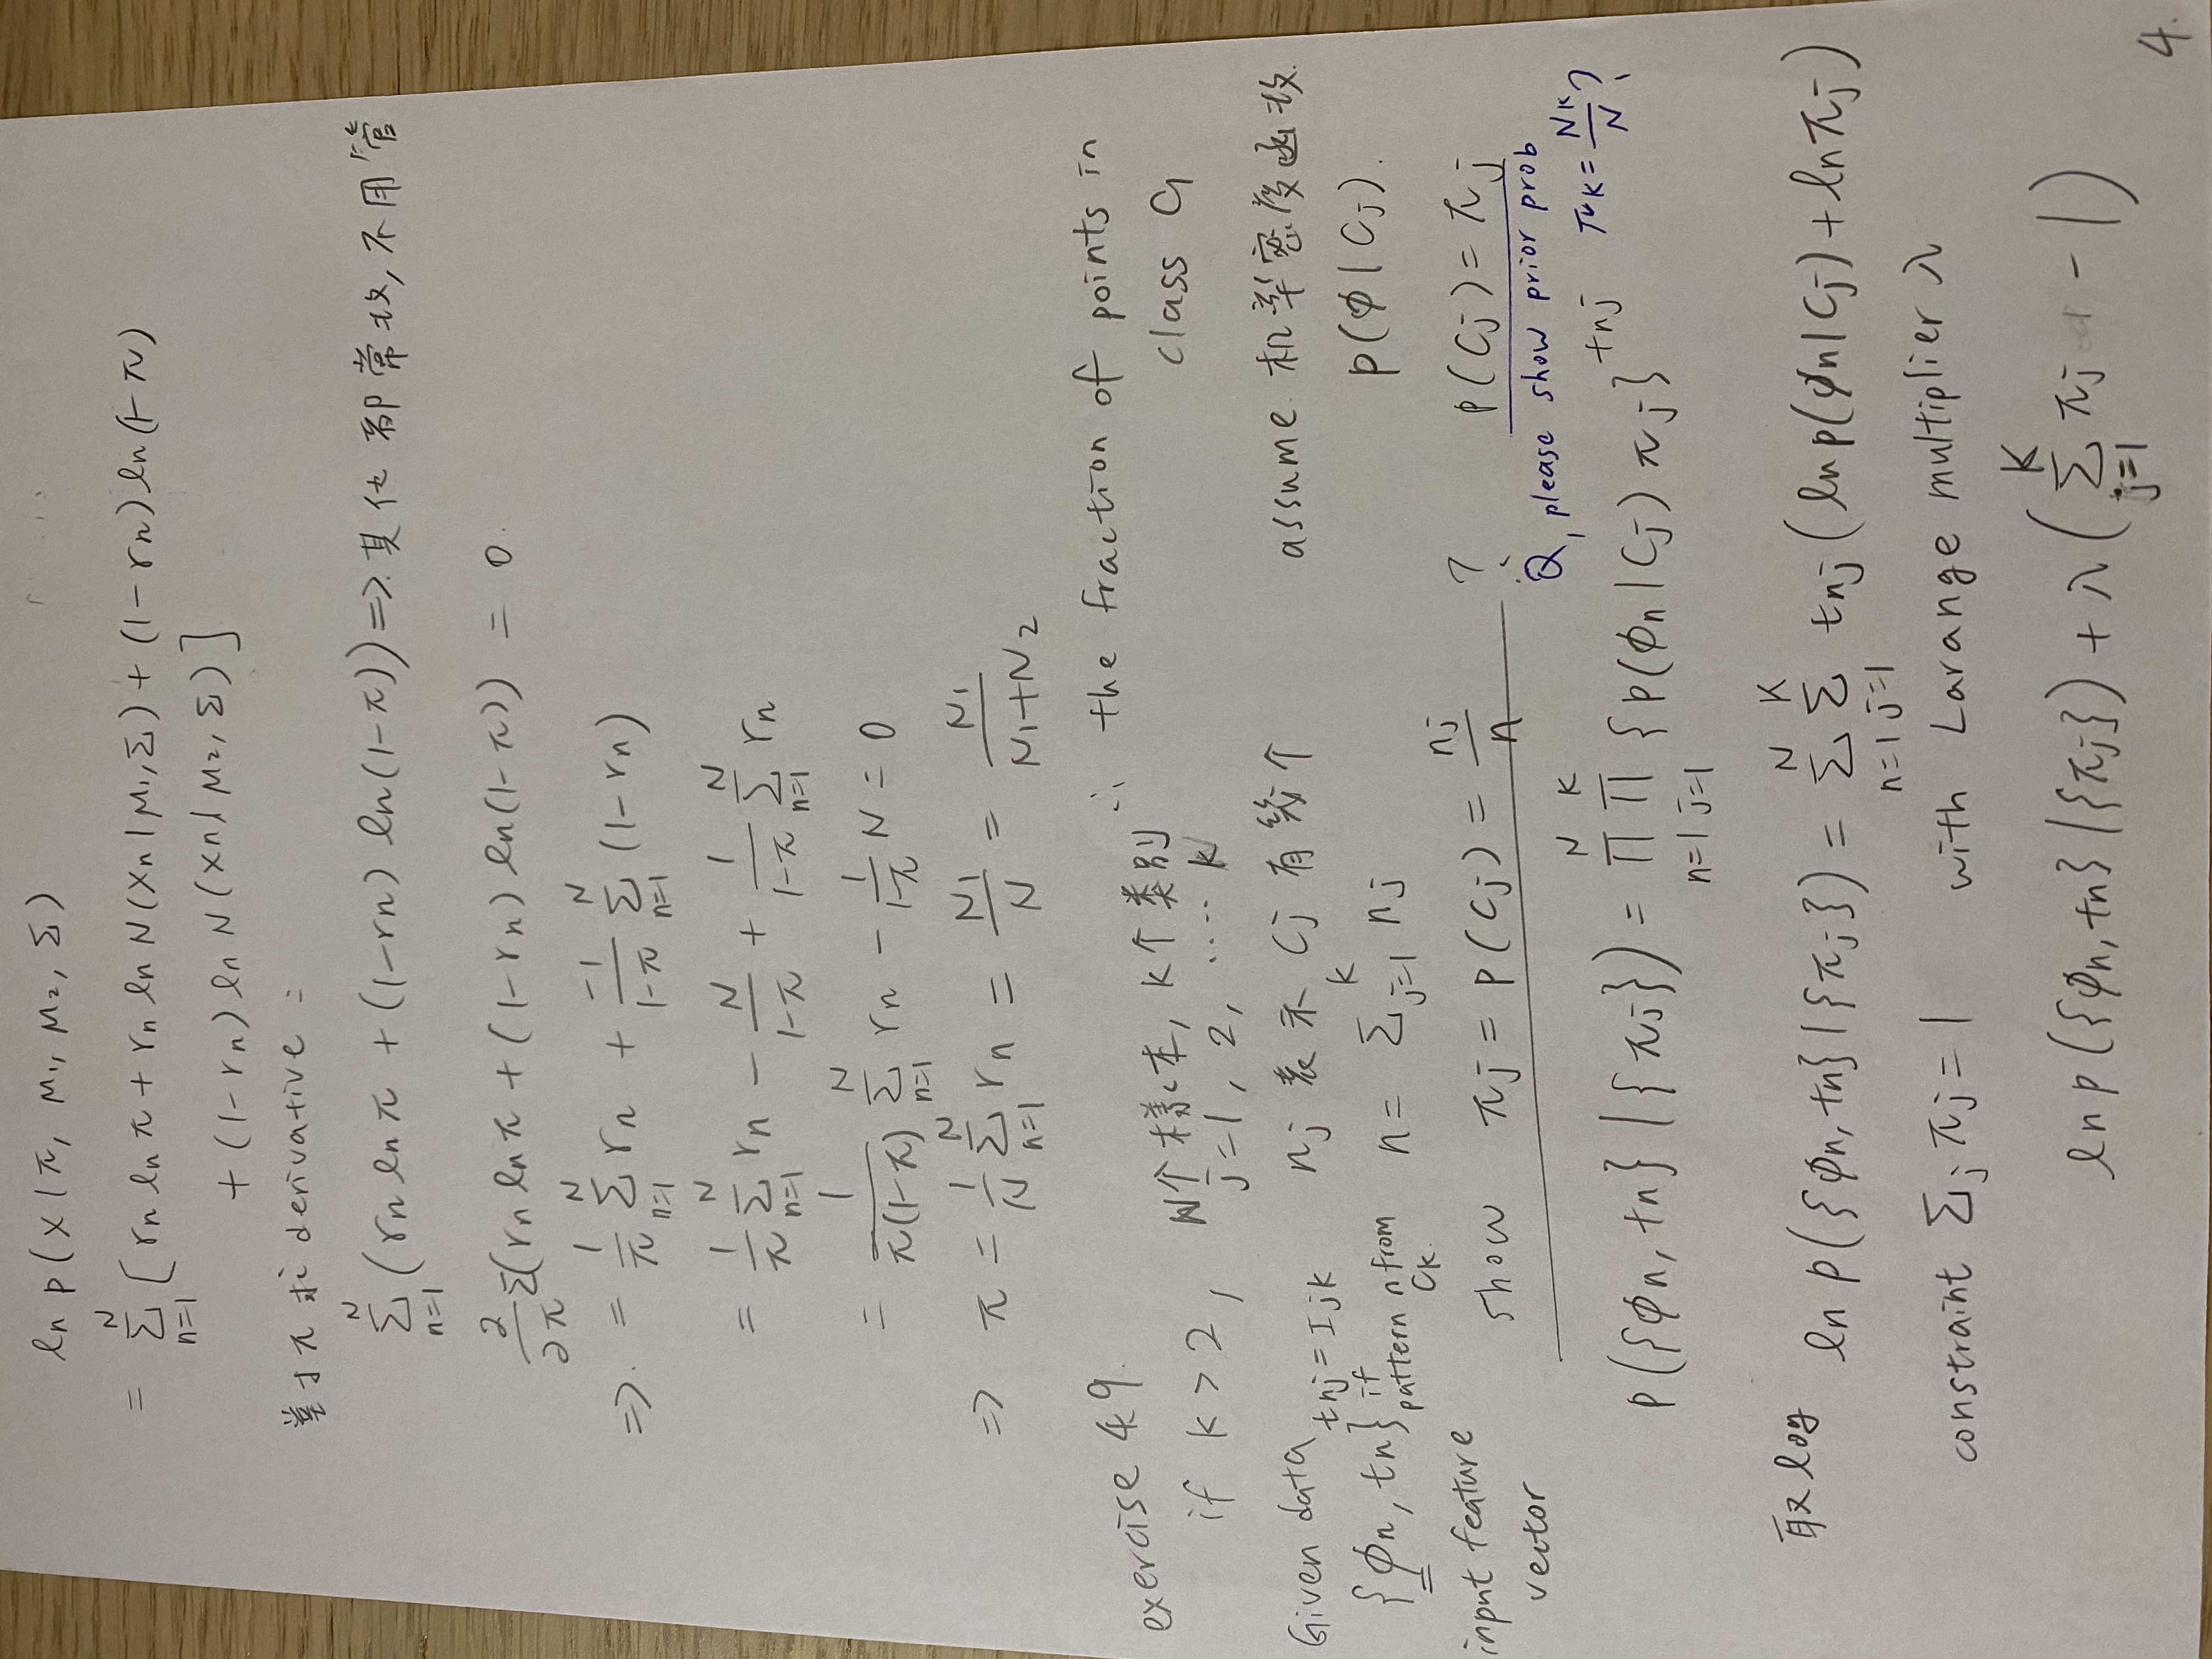 ln p(x|π, μ₁, μ₂, Σ)
= Σ_{n=1}^{N} [rn ln π + rn ln N(xn|μ₁,Σ) + (1-rn) ln(1-π)
+ (1-rn) ln N(xn|μ₂, Σ)]
基于π求 derivative :
Σ_{n=1}^{N} (rn ln π + (1-rn) ln(1-π)) => 其他都常数,不用管
∂/∂π Σ(rn ln π + (1-rn) ln(1-π)) = 0.
=> = 1/π Σ_{n=1}^{N} rn + -1/(1-π) Σ_{n=1}^{N} (1-rn)
= 1/π Σ_{n=1}^{N} rn - N/(1-π) + 1/(1-π) Σ_{n=1}^{N} rn
= 1/(π(1-π)) Σ_{n=1}^{N} rn - 1/(1-π) N = 0
=> π = 1/N Σ_{n=1}^{N} rn = N₁/N = N₁/(N₁+N₂)
∴ the fraction of points in
class C₁
exercise 4.9.
if k > 2, N个樣本, k个类别
j=1, 2, .... k
Given data
tnj = Ijk
{φn, tn} if
pattern n from
Ck.
input feature
vector
nj 表示 Cj 有幾个
n = Σ_{j=1}^{k} nj
assume 机率密度函数.
p(φ|Cj).
show πj = p(Cj) = nj/n ?
p(Cj) = πj
Q, please show prior prob
πk = Nk/N ?
p({φn, tn} | {πj}) = Π_{n=1}^{N} Π_{j=1}^{K} {p(φn|Cj) πj}^{tnj}
取 log ln p({φn, tn} | {πj}) = Σ_{n=1}^{N} Σ_{j=1}^{K} tnj (ln p(φn|Cj) + ln πj)
constraint Σj πj = 1 with Larange multiplier λ
ln p({φn, tn} | {πj}) + λ (Σ_{j=1}^{K} πj - 1)
4.